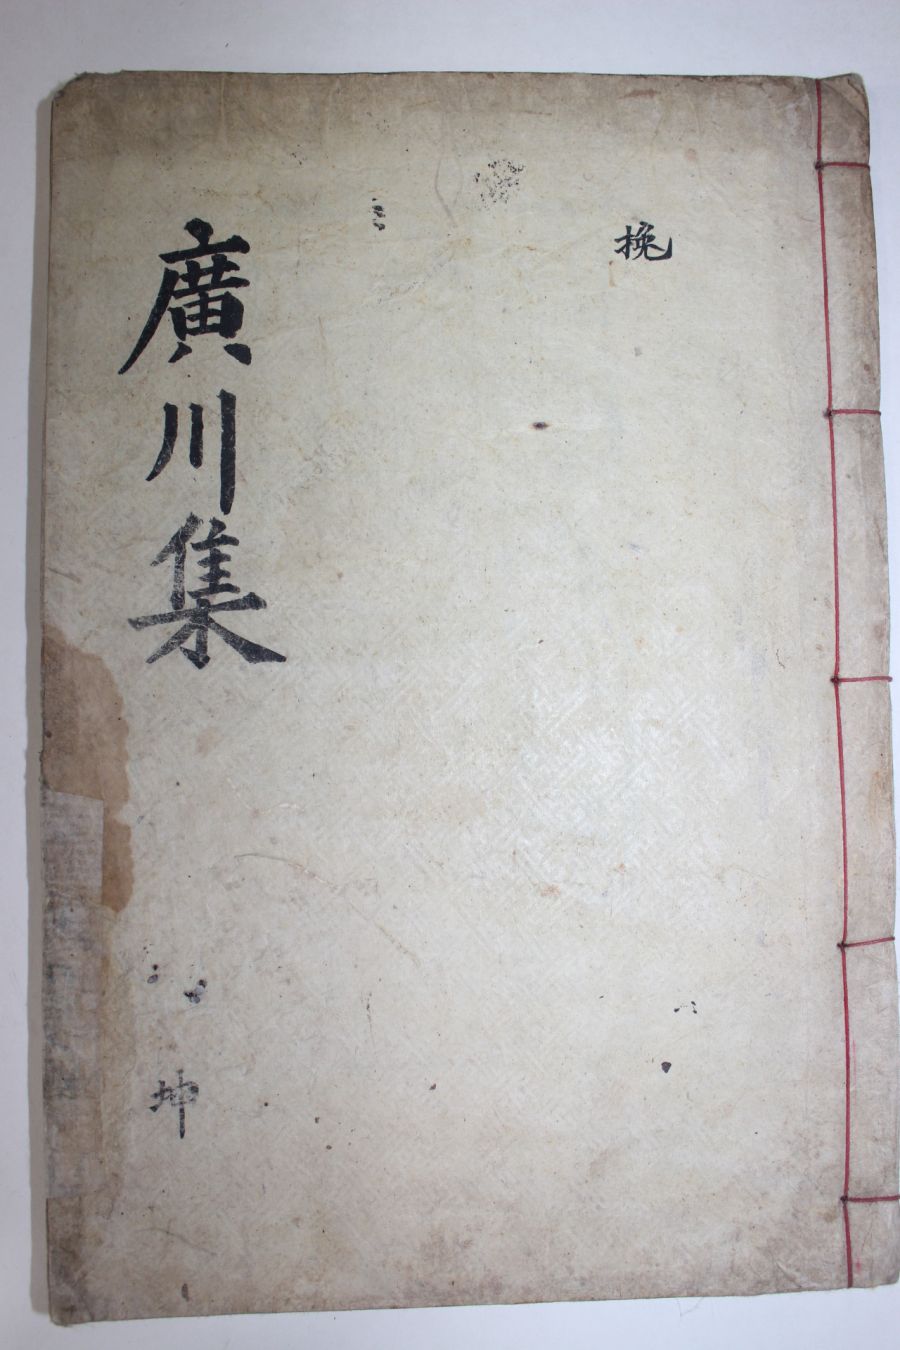 挽
廣川集
坤